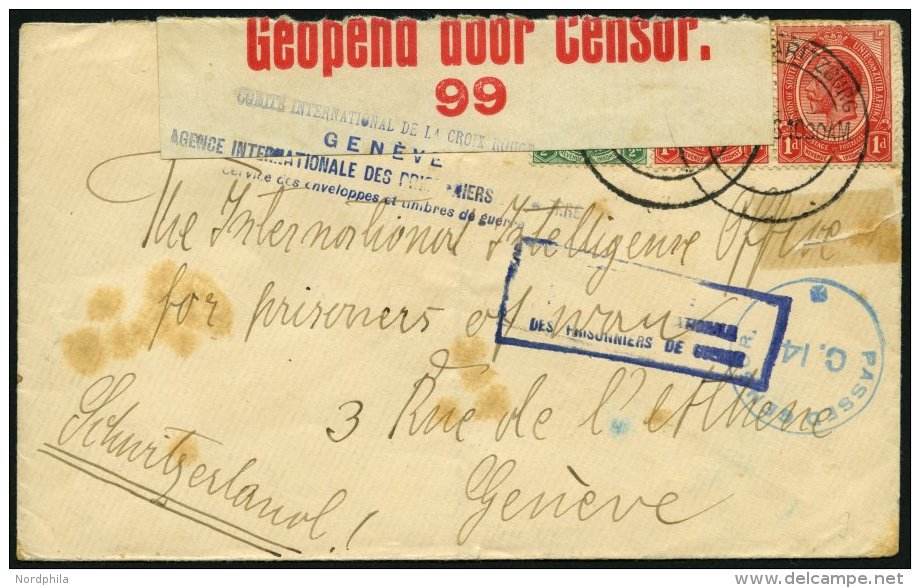 Geopend door Censor.
99
COMITÉ INTERNATIONAL DE LA CROIX ROUGE
GENÈVE
AGENCE INTERNATIONALE DES PRISONNIERS
Service des enveloppes et timbres de guerre
UNIE VAN ZUID AFRIKA
POSTAGE
1d 1d
The International Intelligense Office
for prisoners of war
DES PRISONNIERS DE GUERRE
PASSED CENSOR.
C.14
3 Rue de l'Athene
Genève
Schwitzerland!
Nordphila
delcampe.net